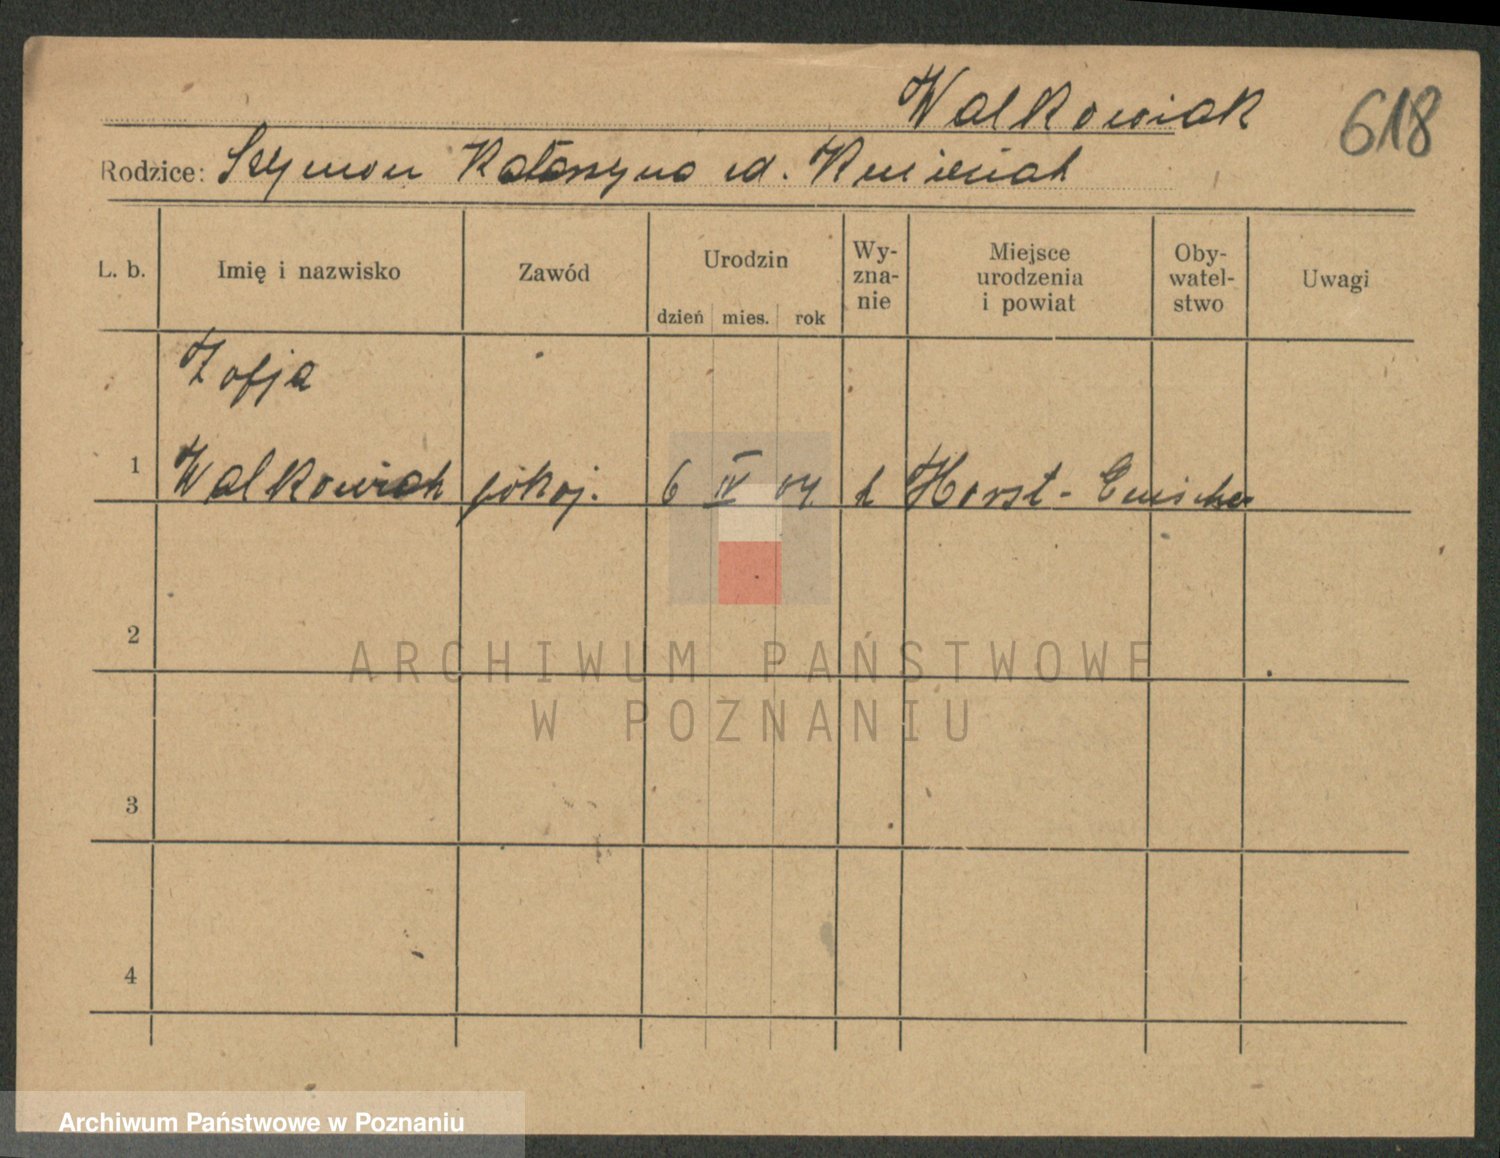 Walkowiak
618
Rodzice: Szymon Katarzyna ud. Kmieciak
L. b.
Imię i nazwisko
Zawód
Urodzin
dzień mies. rok
Wy-
zna-
nie
Miejsce
urodzenia
i powiat
Oby-
watel-
stwo
Uwagi
Zofja
1 Walkowiak pokoj. 6 IV 04 k Horst - Emscher
2
3
4
ARCHIWUM PAŃSTWOWE
W POZNANIU
Archiwum Państwowe w Poznaniu